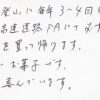 登山に毎年3〜4回
高速道路PAにて必ず
を買って帰ります。
お菓子です。
喜んでいます。